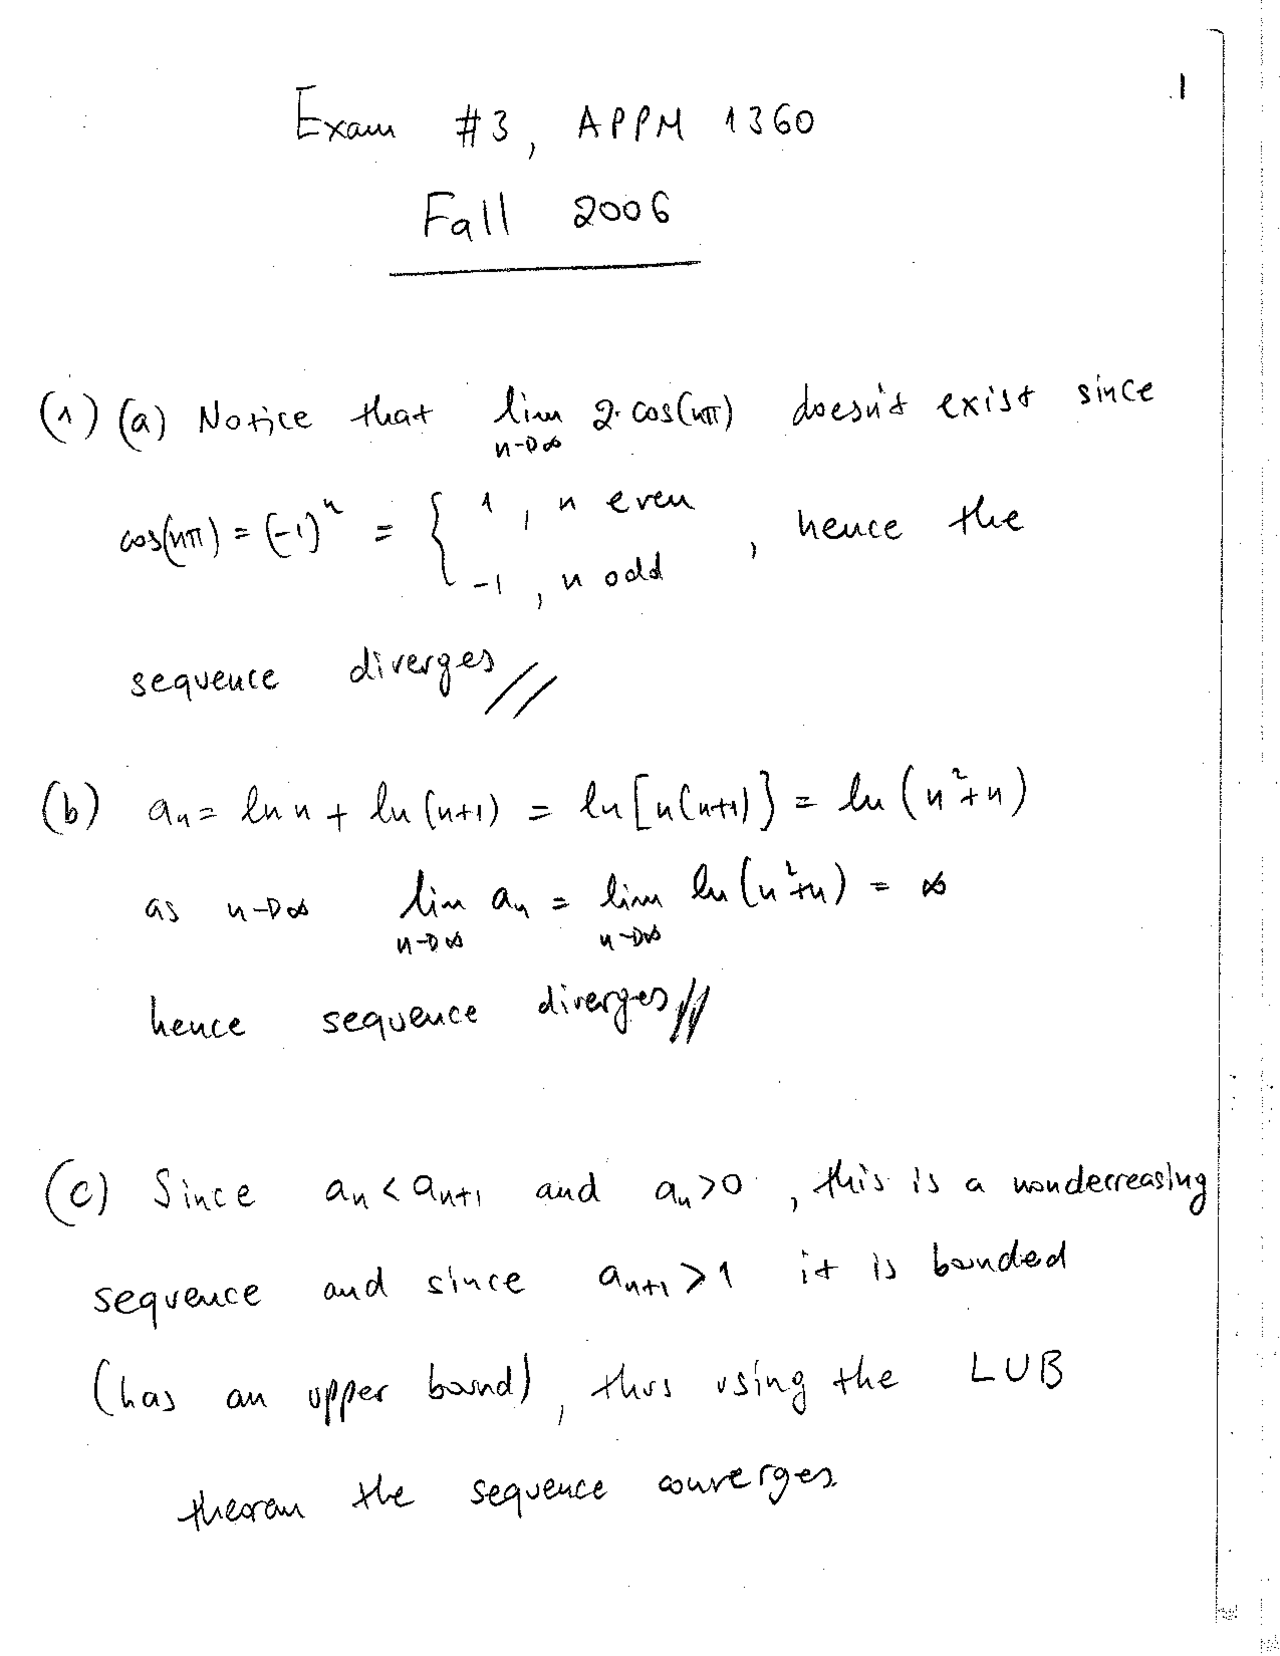 1
Exam #3, APPM 1360
Fall 2006
(1) (a) Notice that lim n→∞ 2·cos(nπ) doesn't exist since
cos(nπ) = (-1)^n = { 1, n even
-1, n odd , hence the
sequence diverges //
(b) an = ln n + ln(n+1) = ln[n(n+1)] = ln(n²+n)
as n→∞ lim n→∞ an = lim n→∞ ln(n²+n) = ∞
hence sequence diverges //
(c) Since an < an+1 and an > 0, this is a nondecreasing
sequence and since an+1 > 1 it is bonded
(has an upper bound), thus using the LUB
theoram the sequence converges.